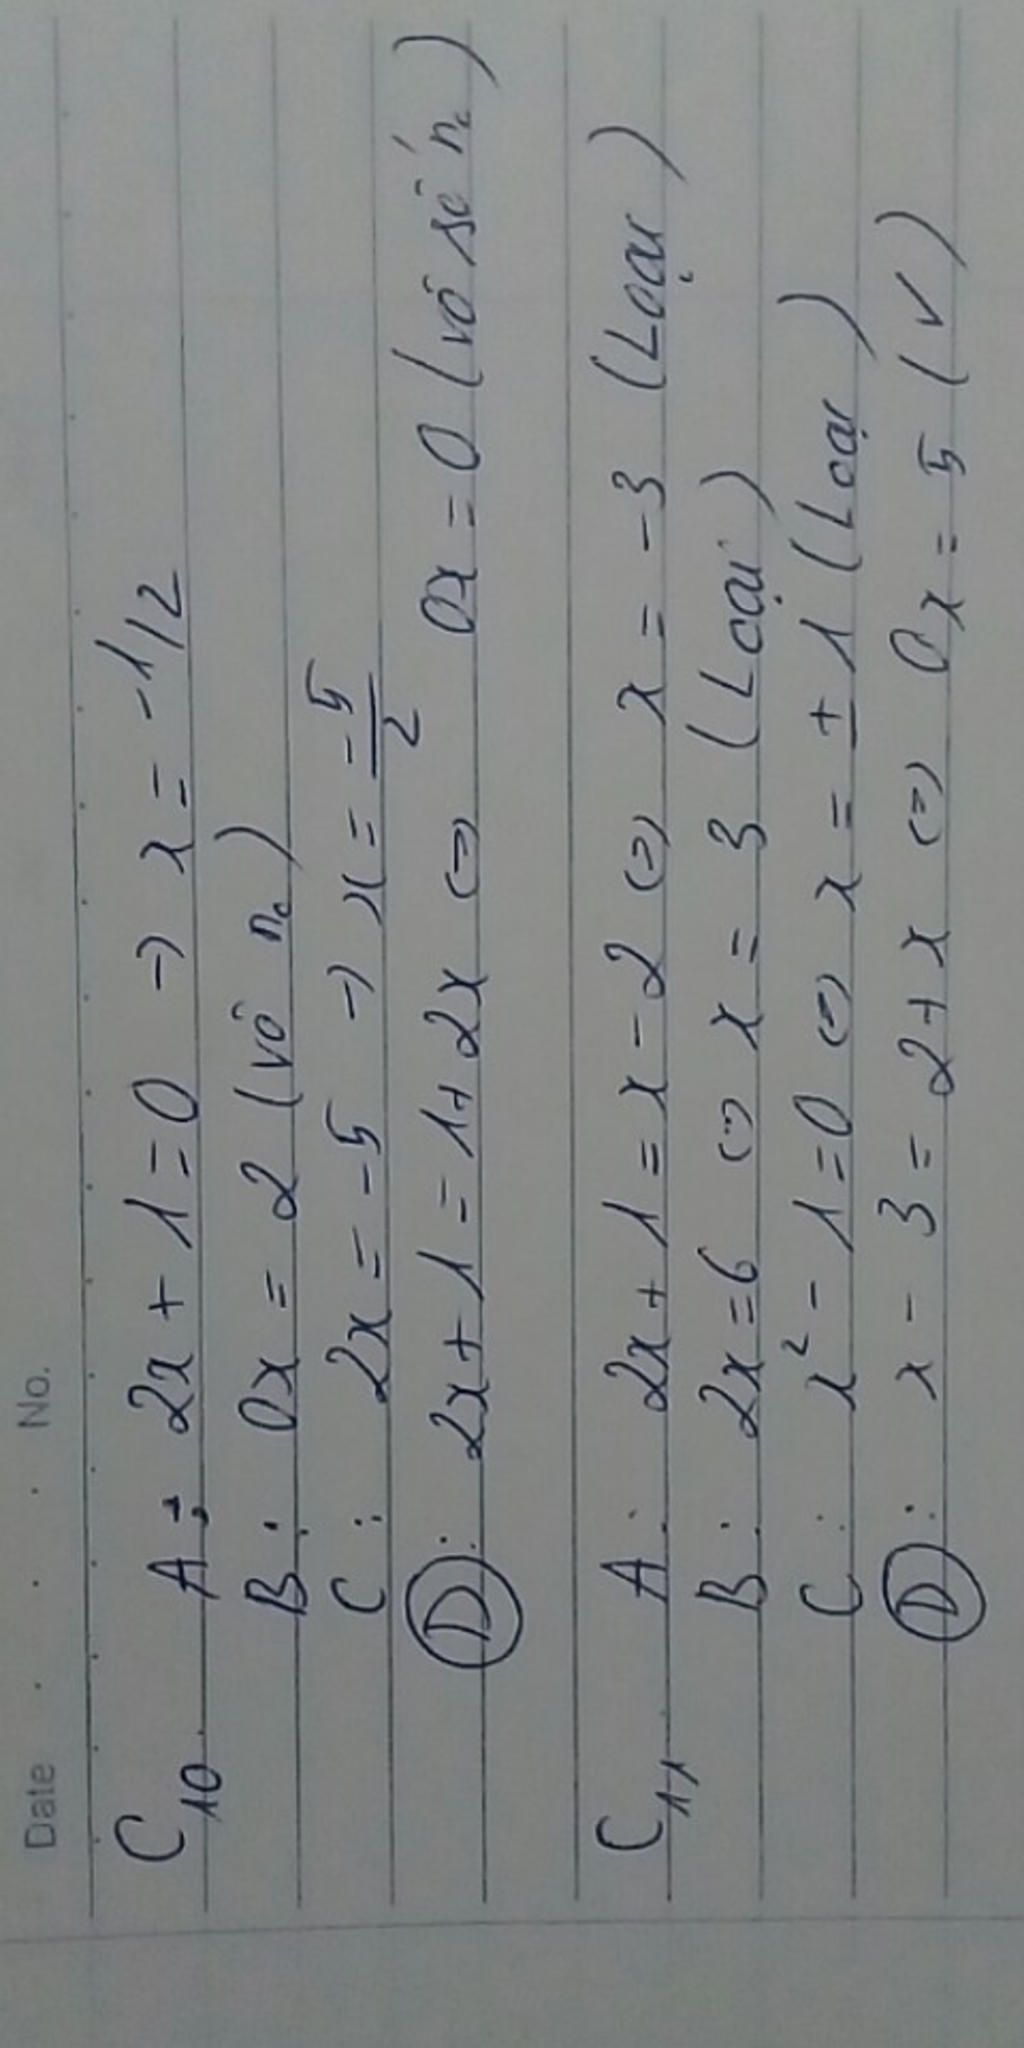 Date . . . No.
C10 A: 2x + 1 = 0 → x = -1/2
B: 0x = 2 (vô n0)
C: 2x = -5 → x = -5/2
D: 2x + 1 = 1 + 2x ⇔ 0x = 0 (vô số n0)
C11 A: 2x + 1 = x - 2 ⇔ x = -3 (Loại)
B: 2x = 6 ⇔ x = 3 (Loại)
C: x² - 1 = 0 ⇔ x = ± 1 (Loại)
D: x - 3 = 2 + x ⇔ 0x = 5 (V)